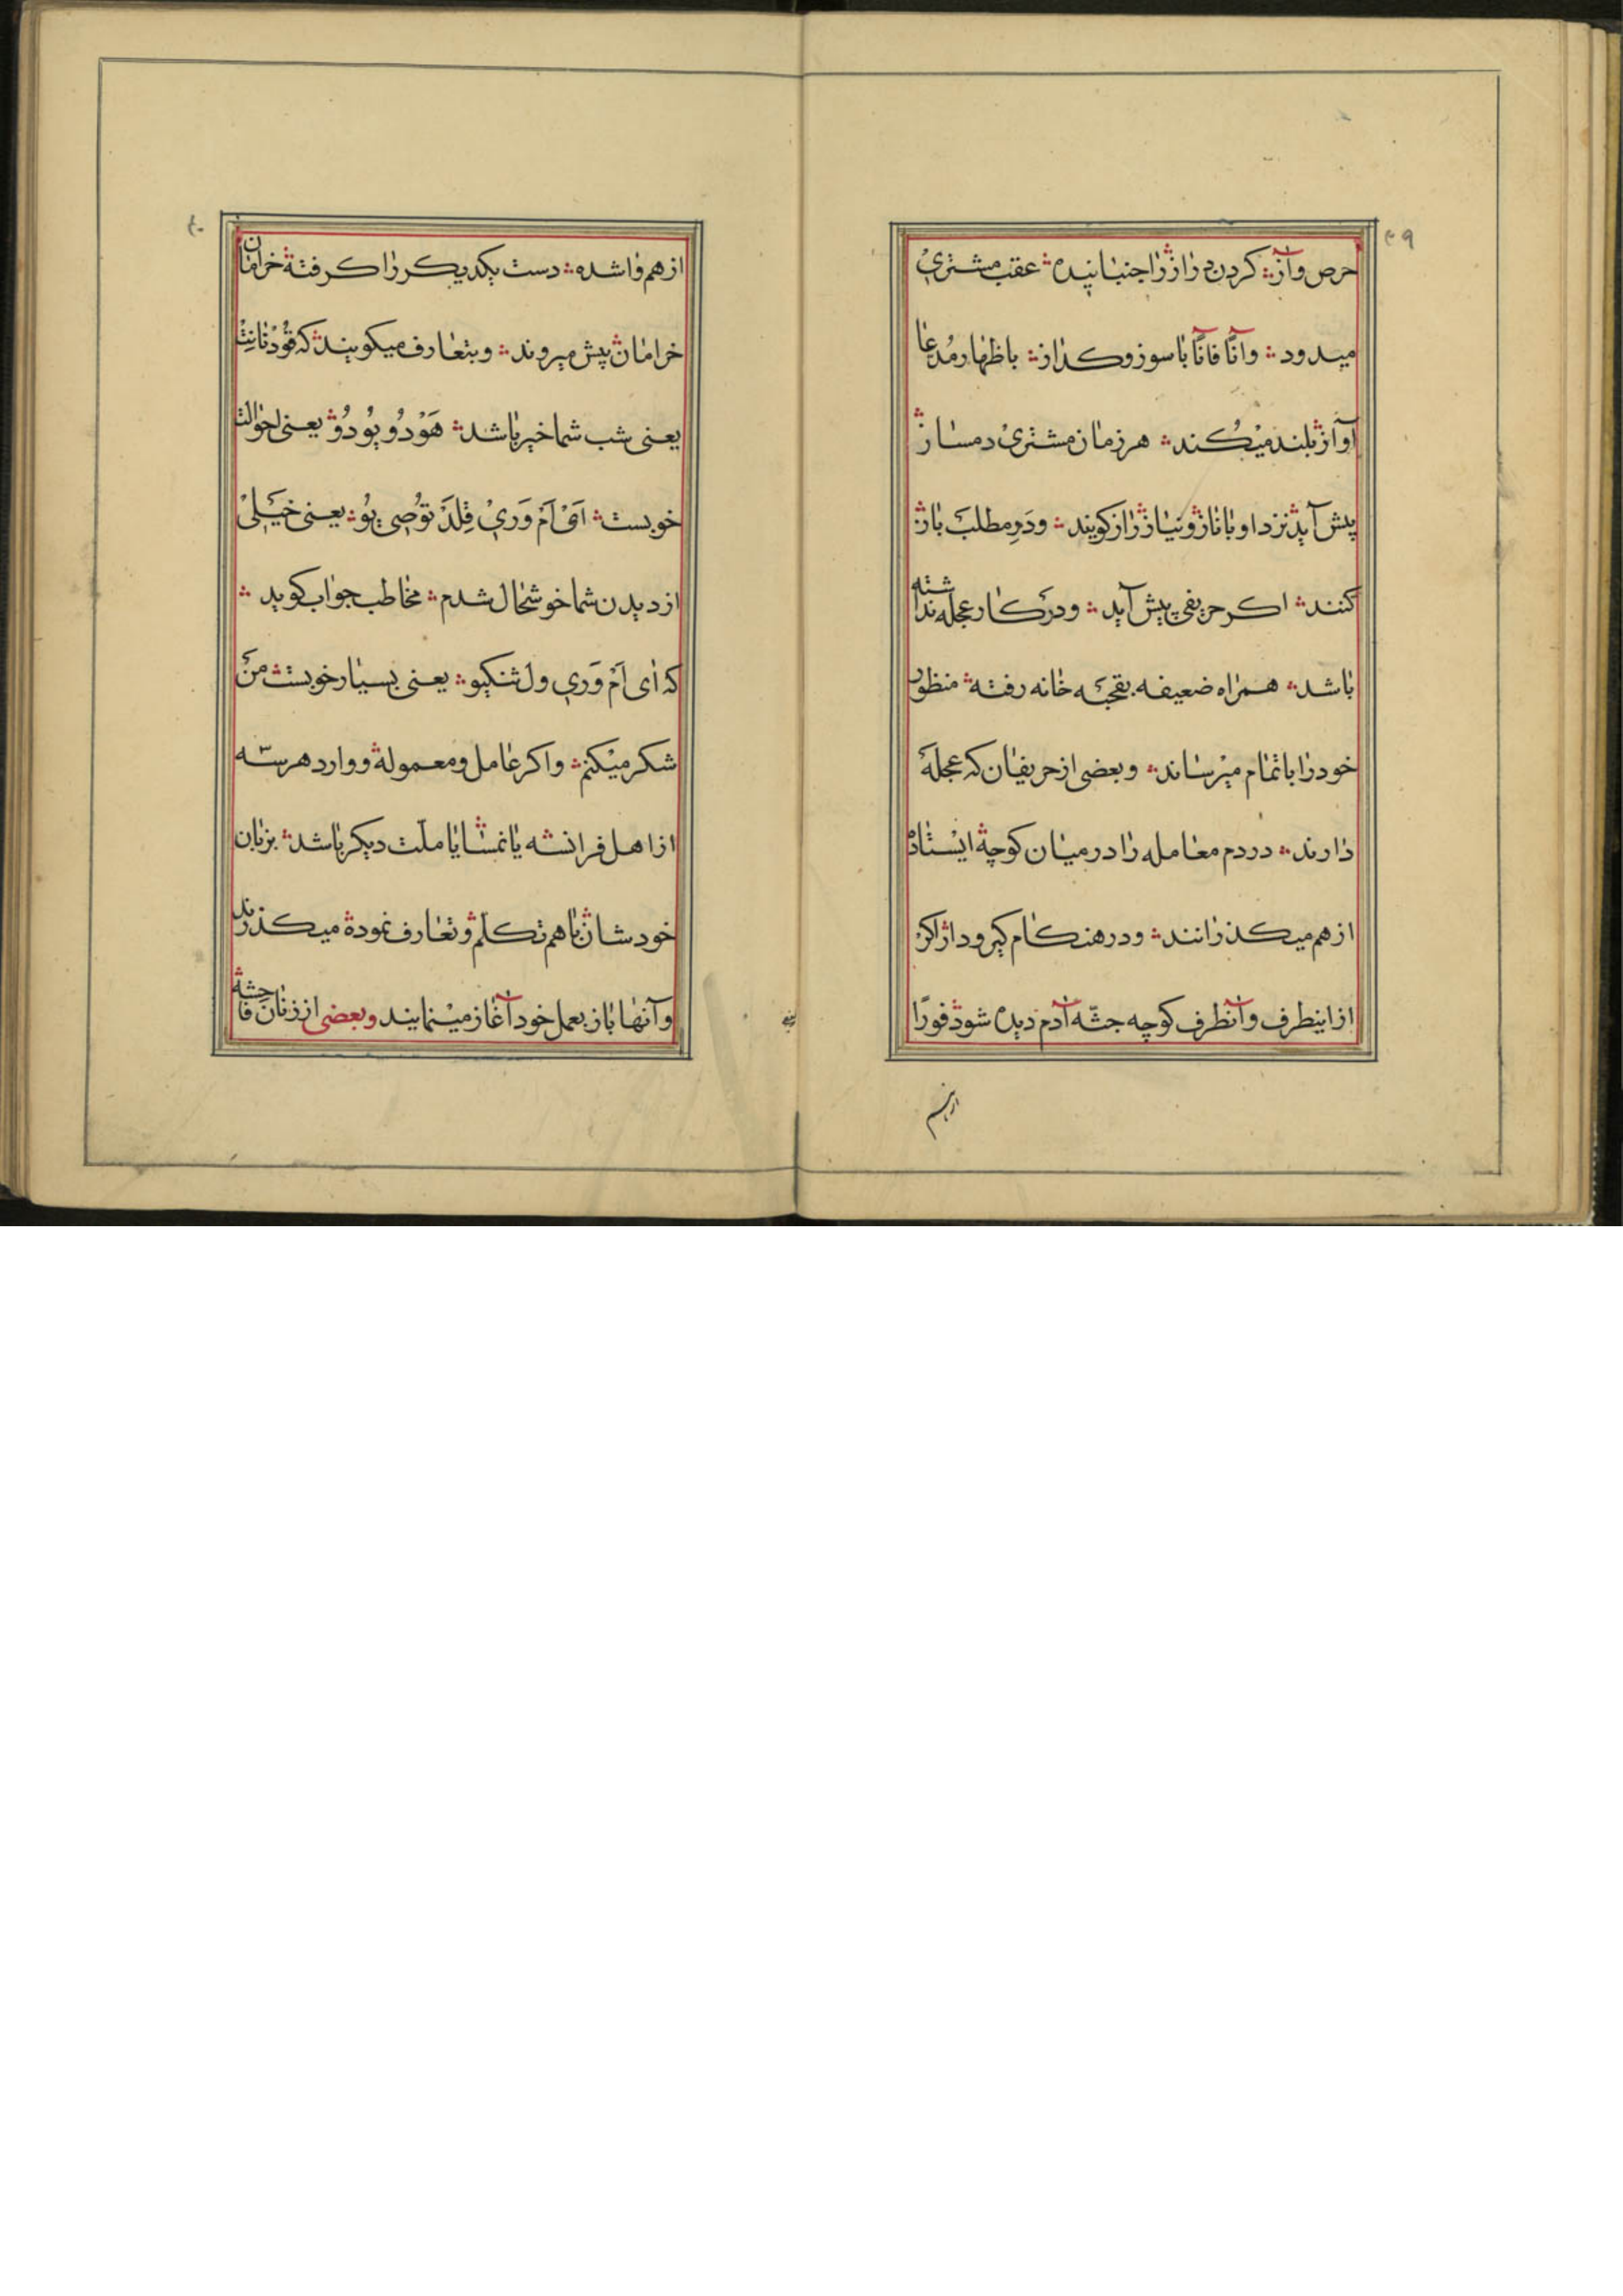 ۳۹
حرص و آز؞ کردن دراز را جنبانیده؞ عقب مشتری
میدود؞ و آنًا فانًا با سوز و کداز؞ باظهار مُدعا
آواز بلند میکند؞ هر زمان مشتری دمساز
پیش آید نزد او با ناز و نیاز راز کویند؞ و دَرِ مطلب باز
کنند؞ اکر حریفی پیش آید؞ و در کار عجله نداشته
باشد؞ همراه ضعیفه بقحبه خانه رفته؞ منظور
خود را باتمام میرساند؞ و بعضی از حریفان که عجلهٔ
دارند؞ در دم معامله را در میان کوچه ایستاده
از هم میکذرانند؞ و در هنکام کیر و دار اکر
از اینطرف و آنطرف کوچه جثّه آدم دیده شود فورًا
از هم
۴۰
از هم واشده؞ دست یکدیکر را کرفته خرامان
خرامان پیش میروند؞ و بتعارف میکویند که قُوْدْ نانِتْ
یعنی شب شما خیر باشد؞ هَوْ دُو یُو دُوْ یعنی احوالت
خوبست؞ اَیْ اَمْ وَرِیْ قِلَدْ تُوْ صِی یُوْ؞ یعنی خَیلی
از دیدن شما خوشحال شدم؞ مخاطب جواب کوید؞
که اَی اَمْ وَری ول ثنکیو؞ یعنی بسیار خوبست منَ
شکر میکنم؞ و اکر عامل و معموله و وارد هر سّه
از اهل فرانسه یا نمسا یا ملّت دیکر باشد؞ بزبان
خودشان با هم تکلّم و تعارف نموده میکذرند
و آنها باز بعمل خود آغاز مینمایند و بعضی از زنان فاحشه